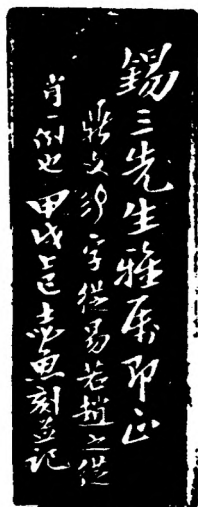 錫三先生雅屬即正
鼎文錫字從易若趙之從
肖一例也甲戌上巳蠹魚刻並記